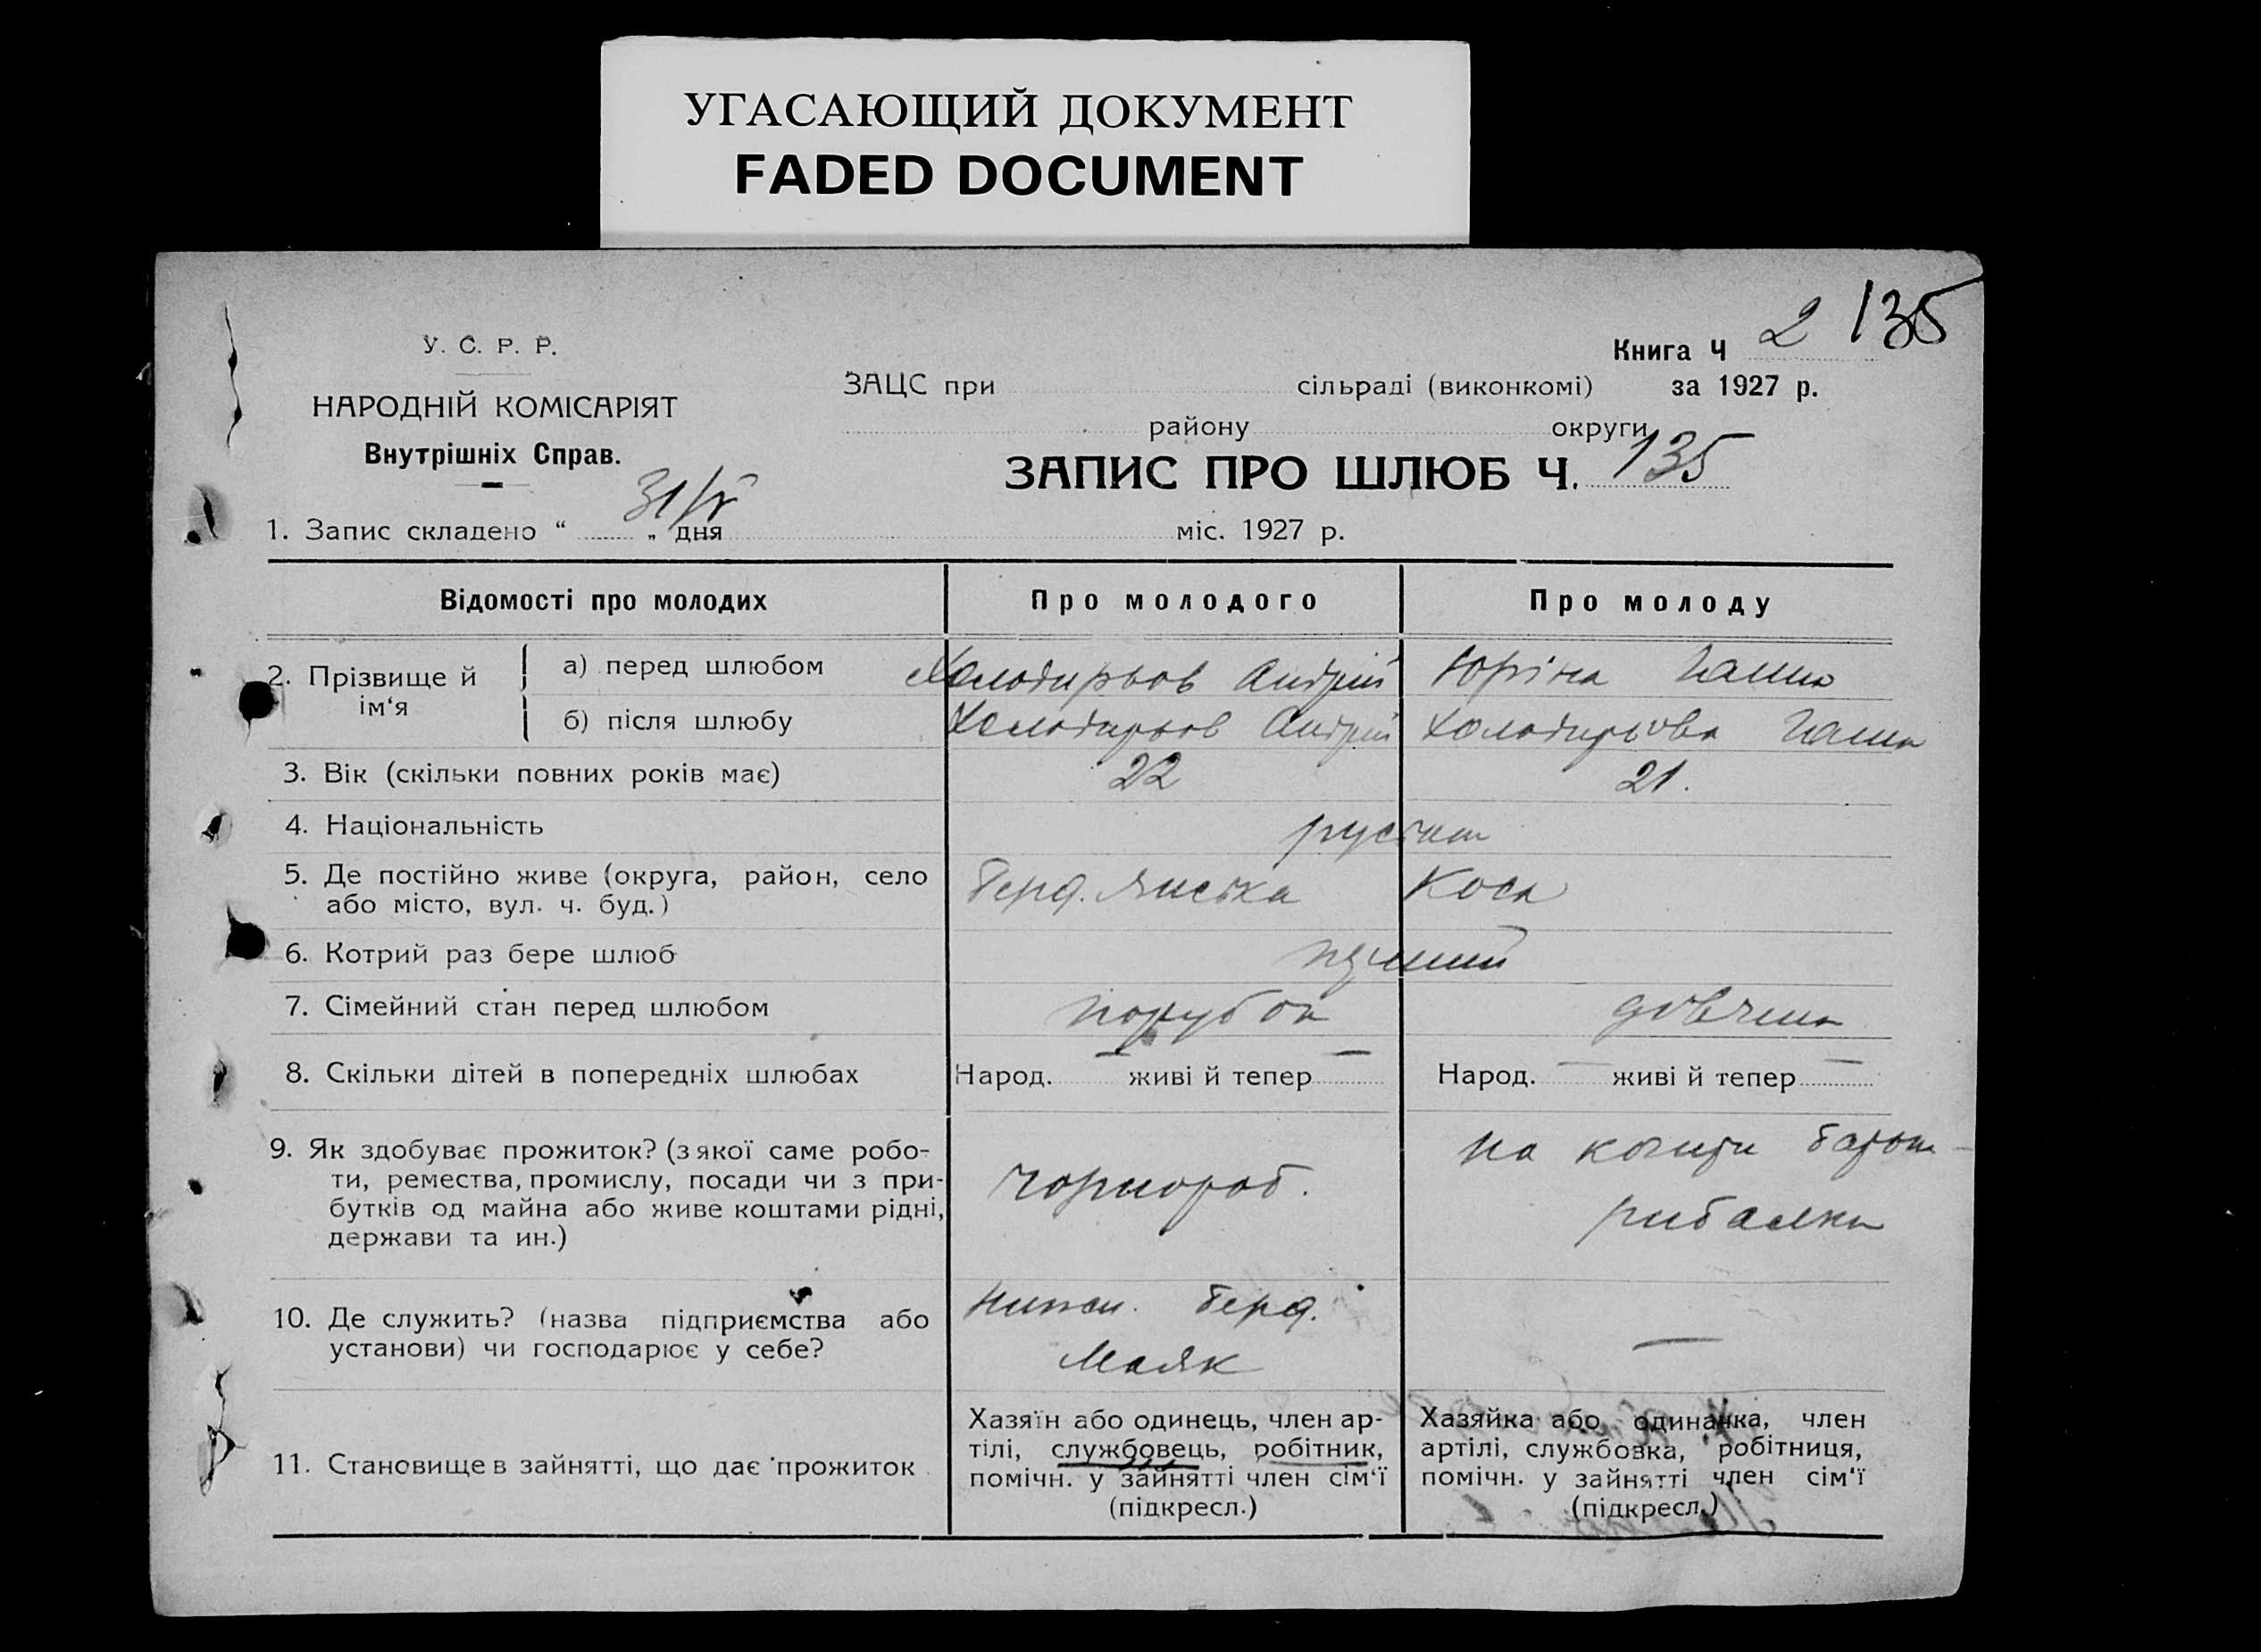 УГАСАЮЩИЙ ДОКУМЕНТ
FADED DOCUMENT
2 135
У. С. Р. Р.
Книга Ч
НАРОДНІЙ КОМІСАРІЯТ
ЗАЦС при сільраді (виконкомі) за 1927 р.
Внутрішніх Справ.
району округи
ЗАПИС ПРО ШЛЮБ Ч. 135
1. Запис складено “ 31/V „ дня міс. 1927 р.
Відомості про молодих Про молодого Про молоду
2. Прізвище й ім‘я
а) перед шлюбом Холодирьов Андрій Юріна Ганна
б) після шлюбу Холодирьов Андрій Холодирьова Ганна
3. Вік (скільки повних років має) 22 21.
4. Національність
5. Де постійно живе (округа, район, село Берд. Коса
або місто, вул. ч. буд.)
6. Котрий раз бере шлюб
7. Сімейний стан перед шлюбом парубок дівчина
8. Скільки дітей в попередніх шлюбах Народ. — живі й тепер — Народ. — живі й тепер —
9. Як здобуває прожиток? (з якої саме робо-
ти, ремества, промислу, посади чи з при-
бутків од майна або живе коштами рідні,
держави та ин.)
чорнороб.
на кошти батька
рибалки
10. Де служить? (назва підприємства або
установи) чи господарює у себе?
Нижн. Берд.
Маяк
—
11. Становище в зайнятті, що дає прожиток
Хазяїн або одинець, член ар-
тілі, службовець, робітник,
помічн. у зайнятті член сім‘ї
(підкресл.)
Хазяйка або одиначка, член
артілі, службовка, робітниця,
помічн. у зайнятті член сім‘ї
(підкресл.)